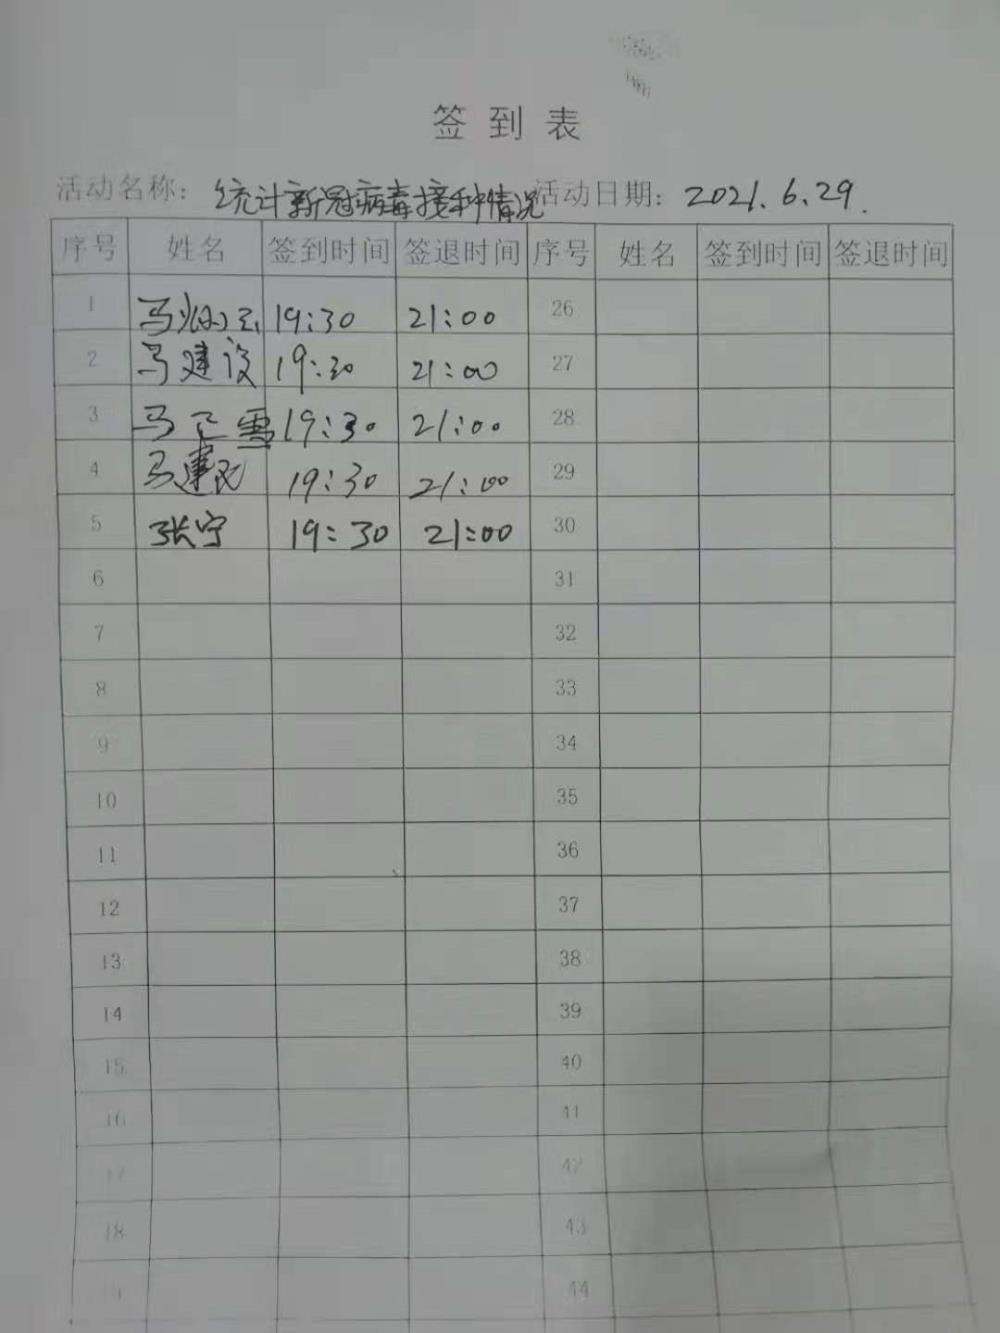 签到表
活动名称：统计新冠病毒接种情况 活动日期：2021.6.29.
序号 姓名 签到时间 签退时间 序号 姓名 签到时间 签退时间
1 马 19:30 21:00 26
2 马建设 19:30 21:00 27
3 马 雪 19:30 21:00 28
4 马建民 19:30 21:00 29
5 张宁 19:30 21:00 30
6 31
7 32
8 33
9 34
10 35
11 36
12 37
13 38
14 39
15 40
16 41
17 42
18 43
19 44